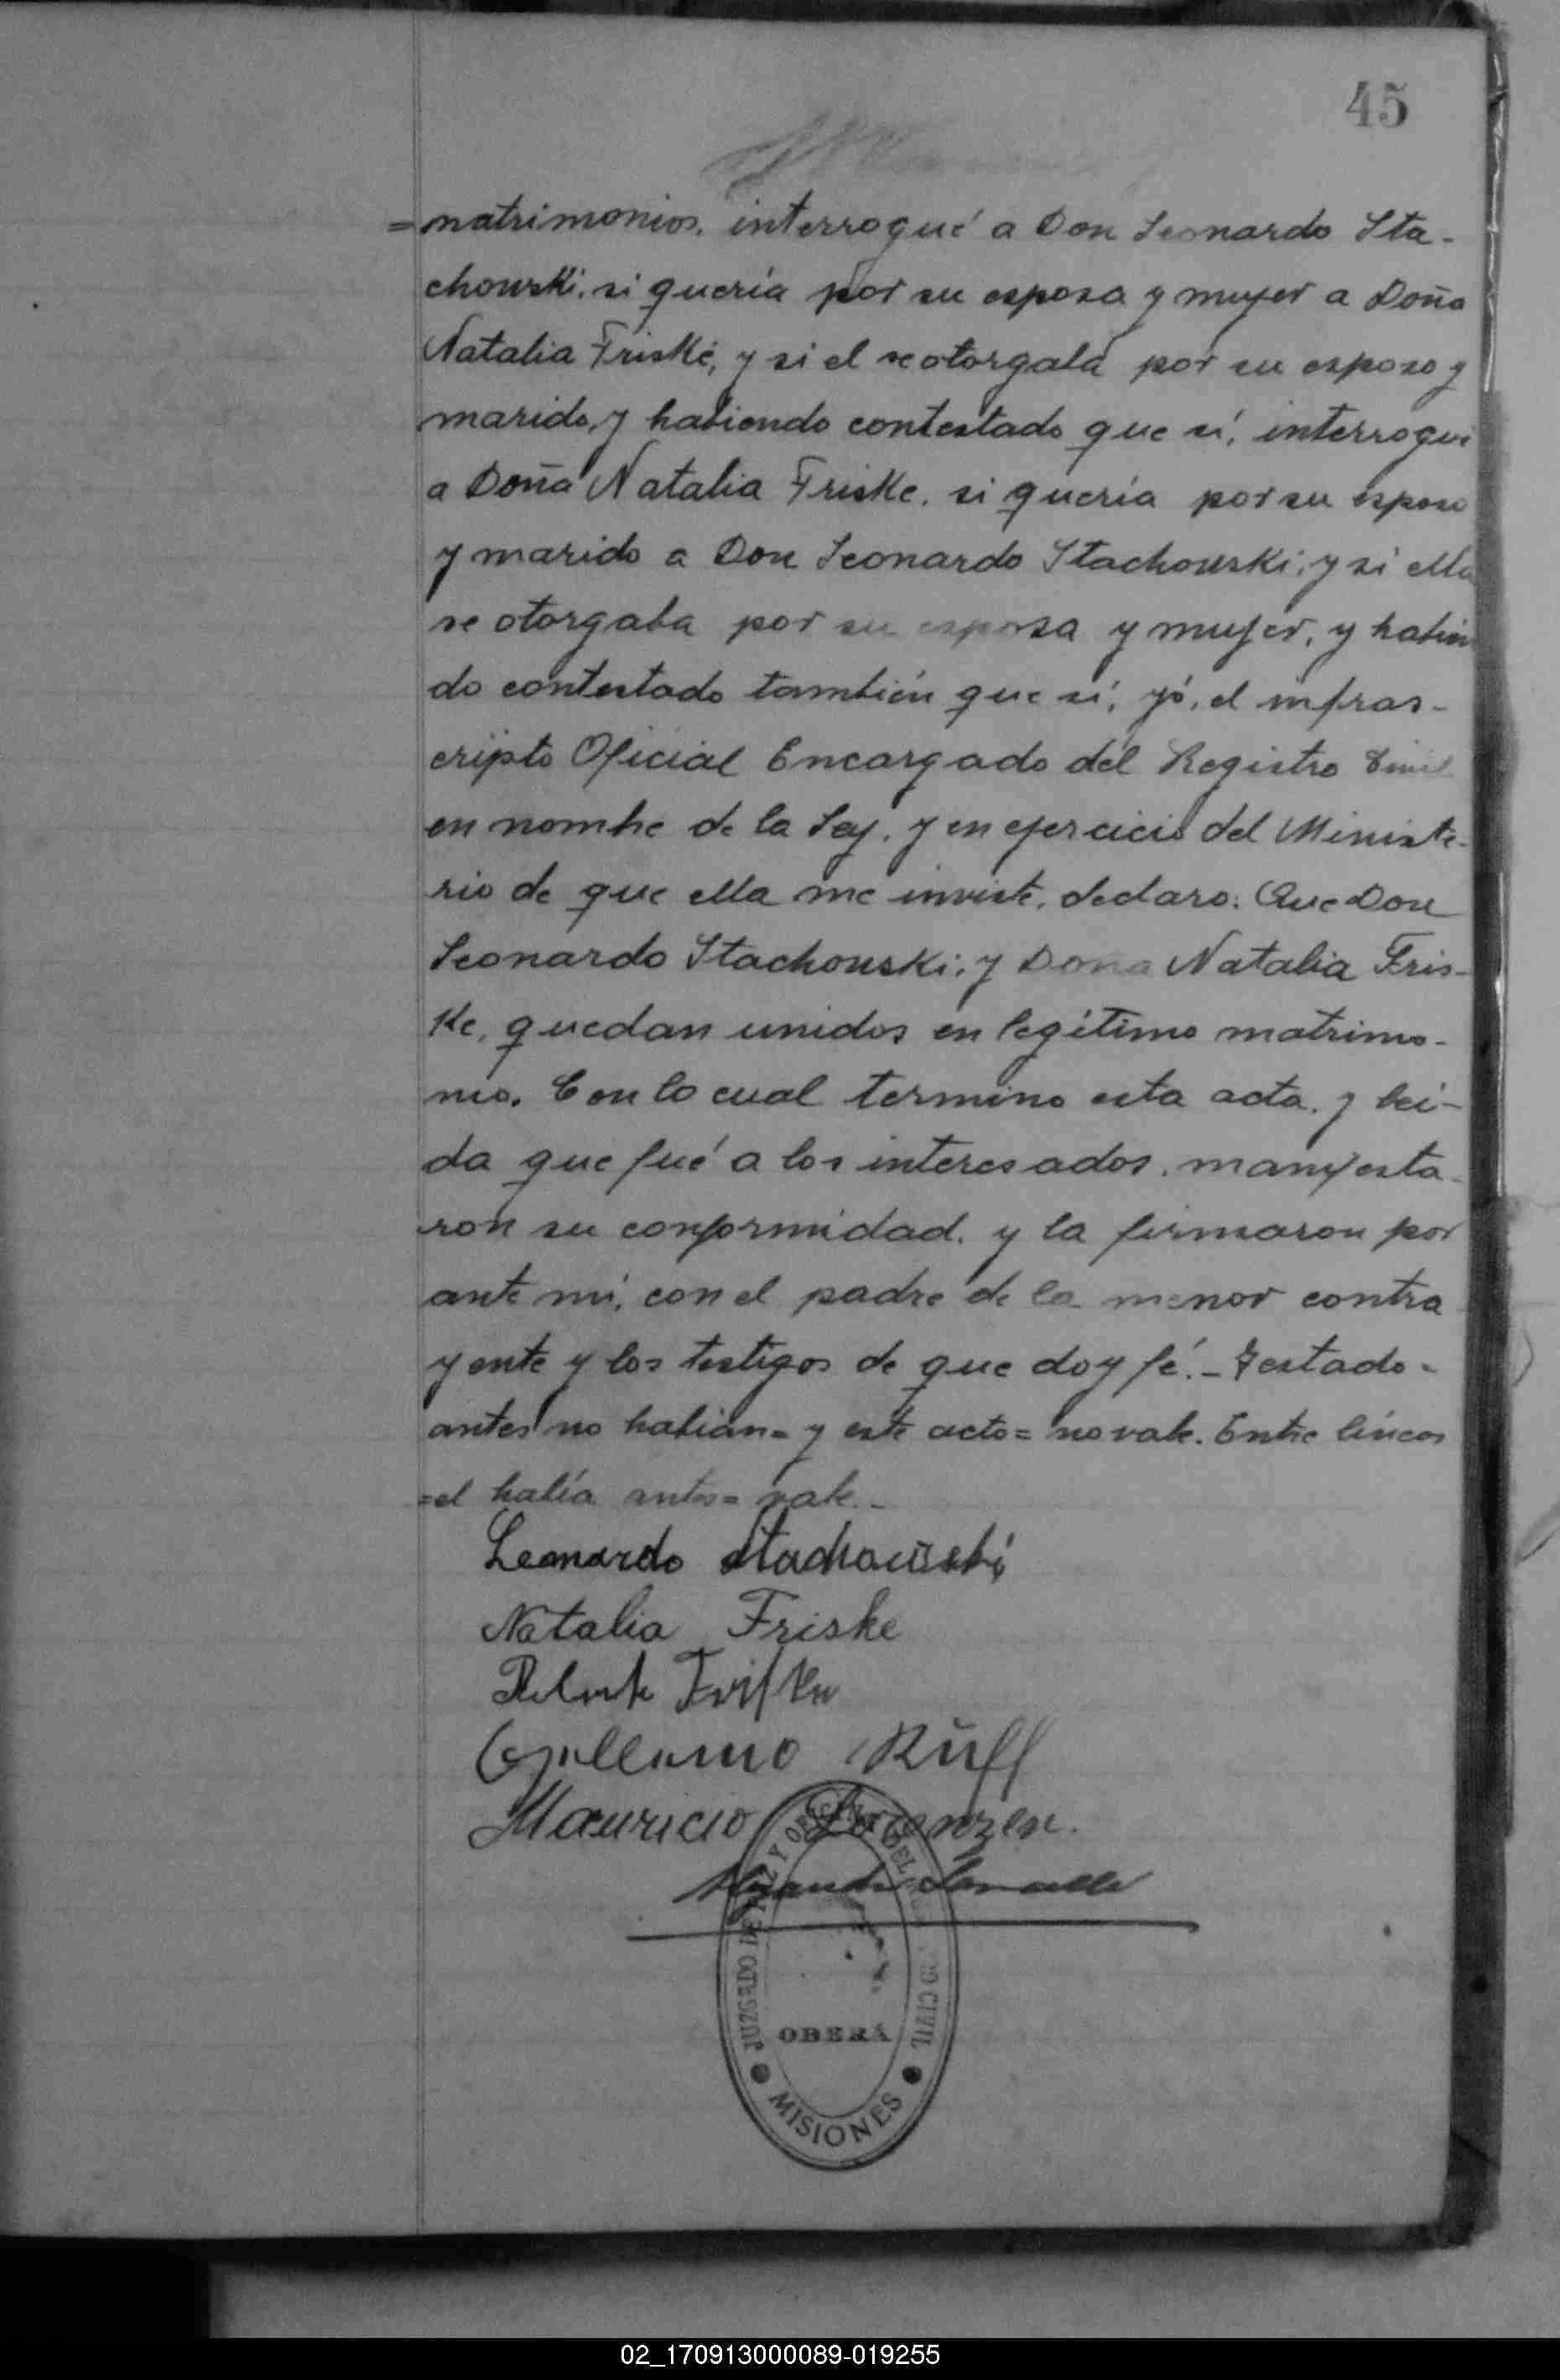 45
=matrimonios, interrogué a Don Leonardo Sta-
chowski, si quería por su esposa y mujer a Doña
Natalia Friske, y si el se otorgaba por su esposo y
marido, y habiendo contestado que sí, interrogué
a Doña Natalia Friske, si quería por su esposo
y marido a Don Leonardo Stachowski, y si ella
se otorgaba por su esposa y mujer, y habien
do contestado también que sí, yó, el infras-
cripto Oficial Encargado del Registro Civil
en nombre de la Ley, y en ejercicio del Ministe-
rio de que ella me inviste, declaro: Que Don
Leonardo Stachowski, y Doña Natalia Fris-
ke, quedan unidos en legítimo matrimo-
nio. Con lo cual termino esta acta, y leí-
da que fué a los interesados, manifesta-
ron su conformidad, y la firmaron por
ante mí, con el padre de la menor contra
yente y los testigos de que doy fé.- Testado=
antes no habían= y este acto= no vale. Entre líneas
=el había antes= vale.-
Leonardo Stachowski
Natalia Friske
Guillermo Rüff
Mauricio Lorenzen.
JUZGADO DE PAZ Y OFICINA DEL REGISTRO CIVIL
OBERÁ
MISIONES
02_170913000089-019255